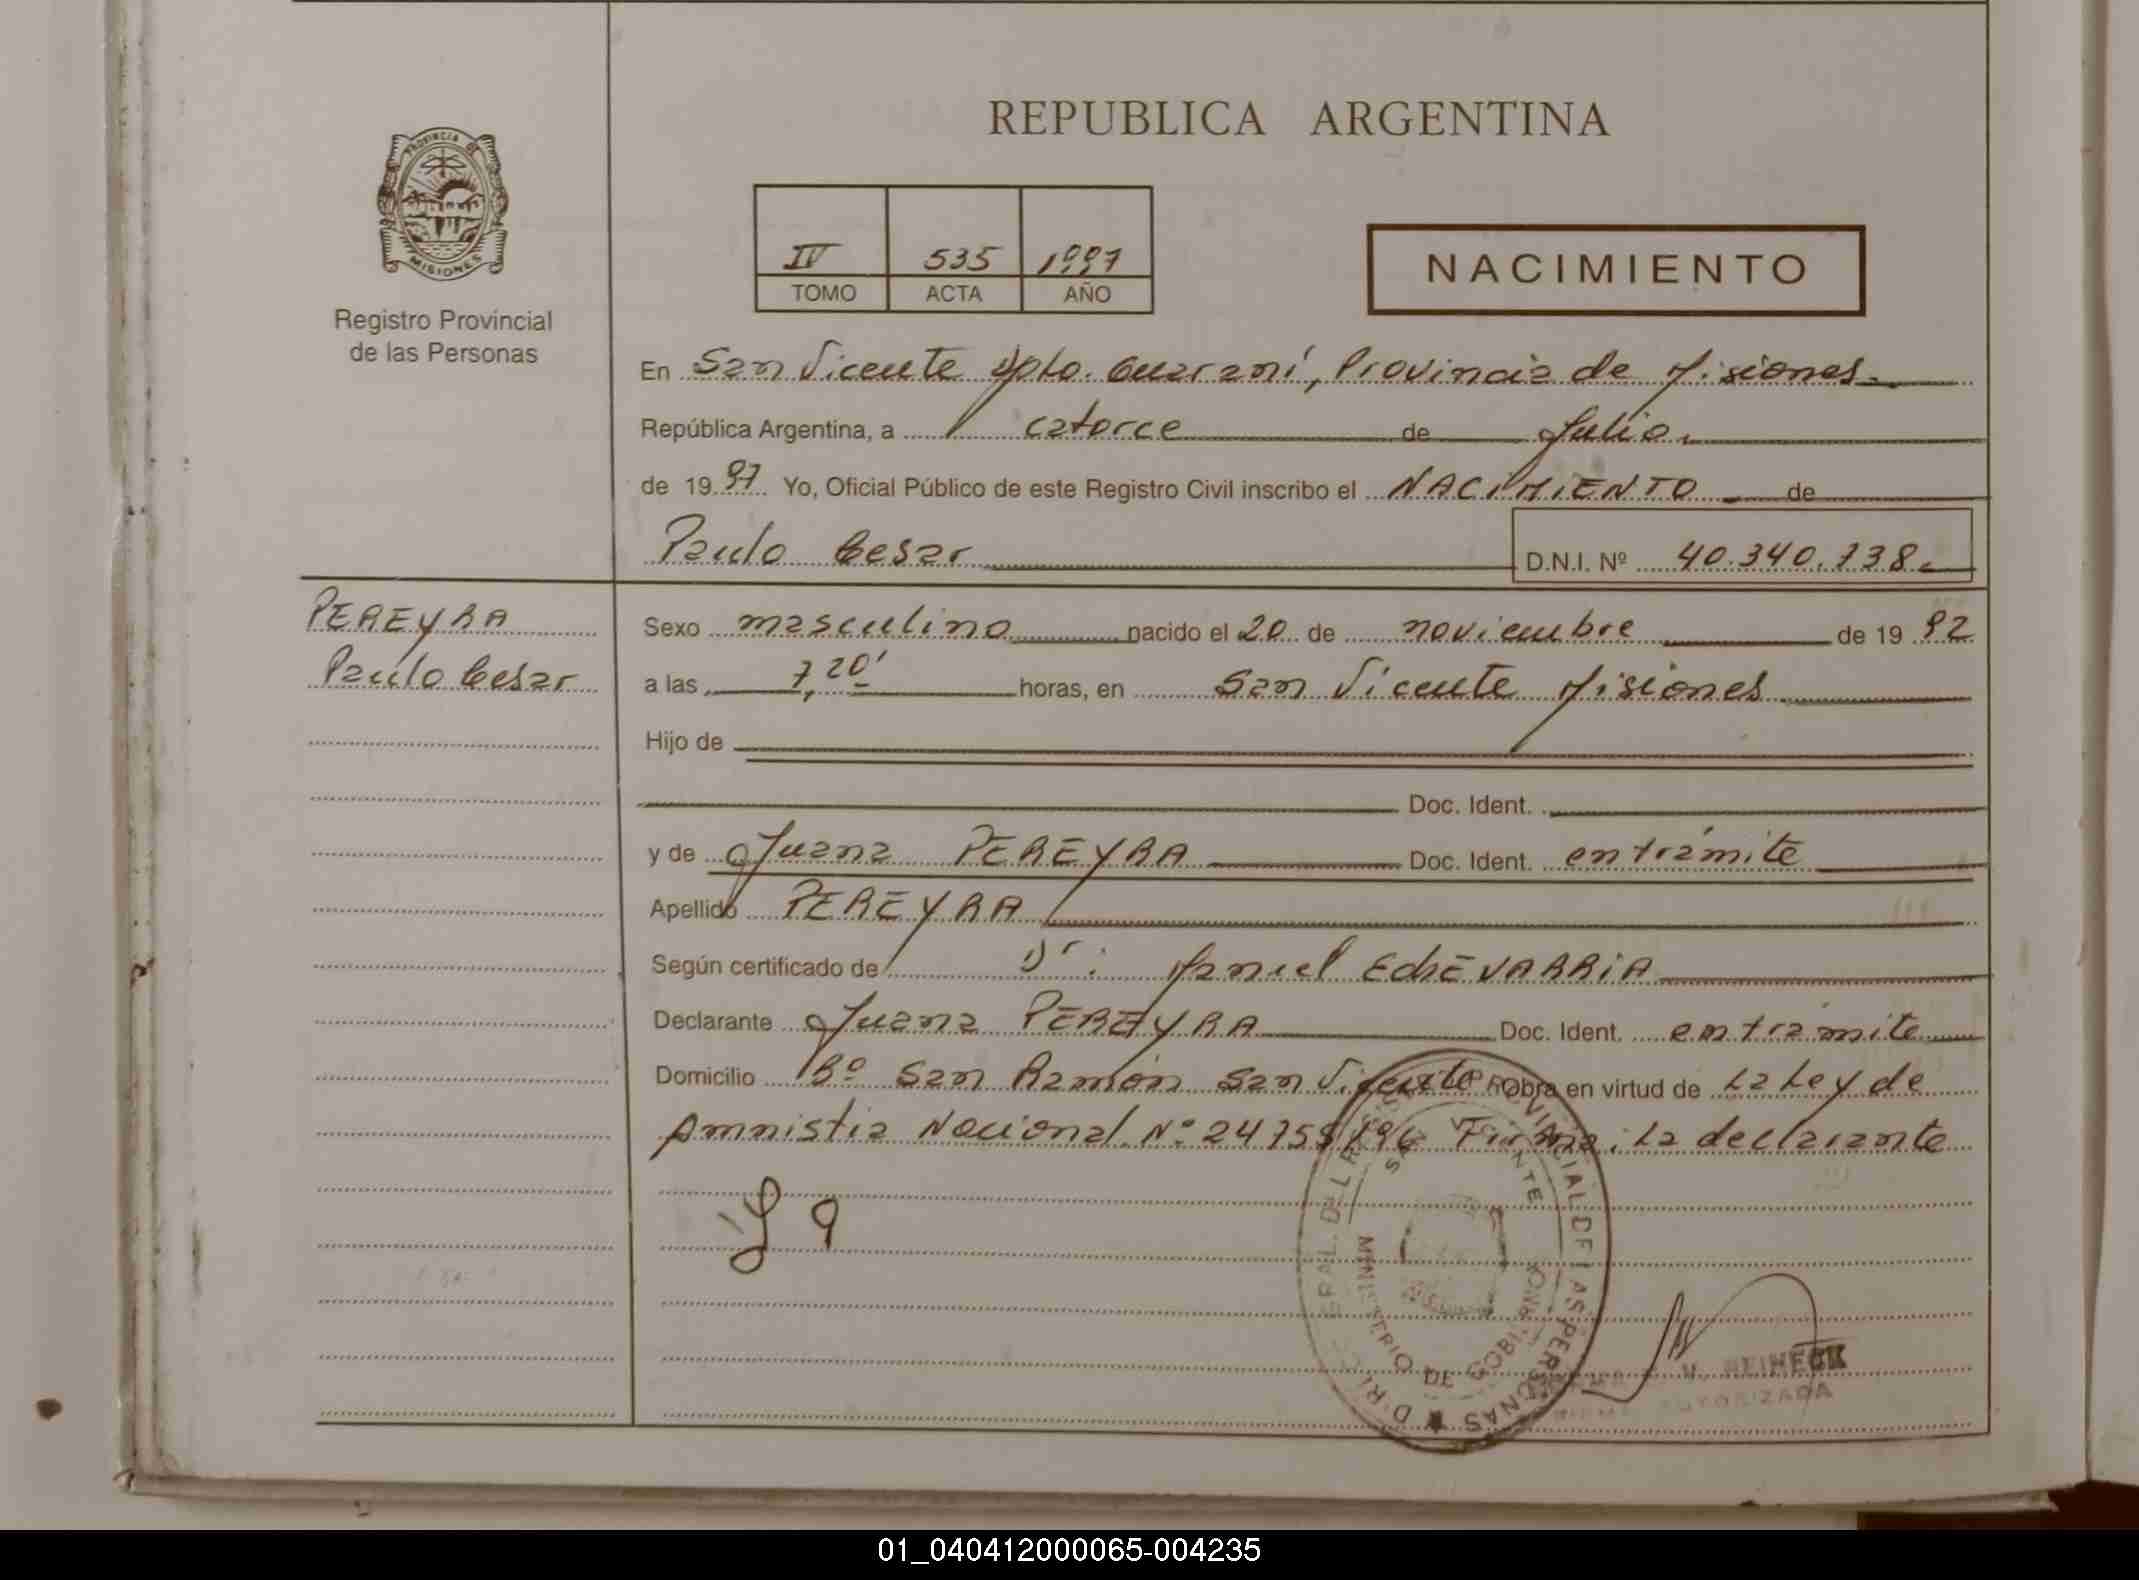 PROVINCIA DE
MISIONES
Registro Provincial
de las Personas
REPUBLICA ARGENTINA
IV 535 1997
TOMO ACTA AÑO
NACIMIENTO
En San Vicente Dpto. Guaraní, Provincia de Misiones.
República Argentina, a catorce de Julio.
de 1997 Yo, Oficial Público de este Registro Civil inscribo el NACIMIENTO de
Paulo Cesar D.N.I. Nº 40.340.738.
PEREYRA
Paulo Cesar
Sexo masculino nacido el 20 de noviembre de 1992
a las 7,20' horas, en San Vicente Misiones
Hijo de
Doc. Ident.
y de Juana PEREYRA Doc. Ident. en trámite
Apellido PEREYRA
Según certificado de Dr: Manuel EchEVARRiA
Declarante Juana PEREYRA Doc. Ident. en trámite
Domicilio Bº San Ramón San Vicente Obra en virtud de La Ley de
Amnistia Nacional Nº 24755/96 Firma: La declarante
DIR. GRAL. DEL REG. PROVINCIAL DE LAS PERSONAS
SAN VICENTE
MINISTERIO DE GOBIERNO
REINECK
FIRMA AUTORIZADA
01_040412000065-004235